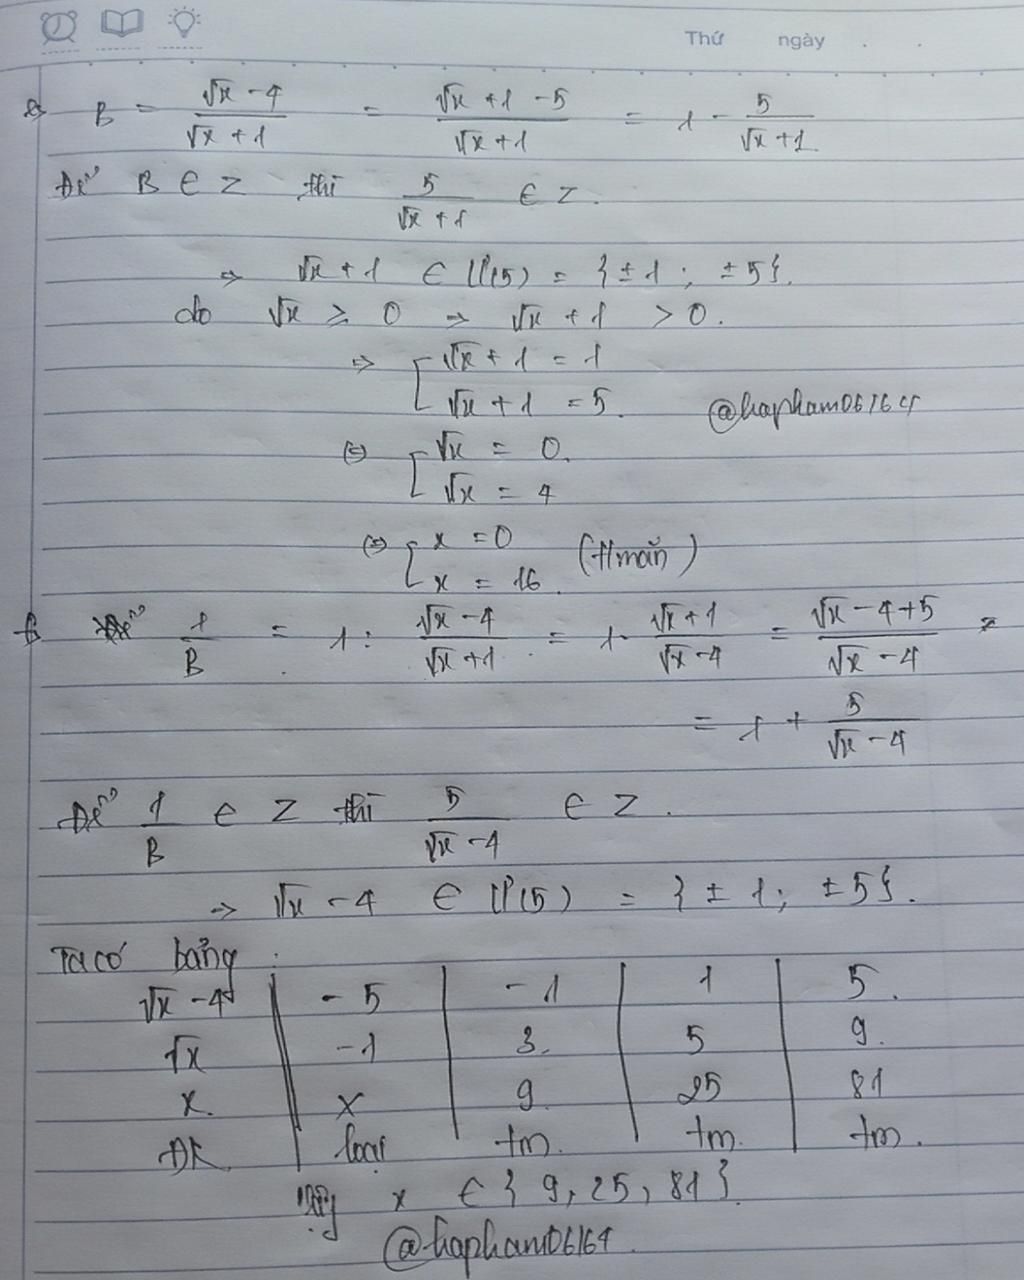 Thứ ngày . .
e, B = (√x - 4)/(√x + 1) = (√x + 1 - 5)/(√x + 1) = 1 - 5/(√x + 1)
Để B ∈ Z thì 5/(√x + 1) ∈ Z.
⇒ √x + 1 ∈ Ư(5) = {±1 ; ±5}.
do √x ≥ 0 ⇒ √x + 1 > 0.
⇒ [ √x + 1 = 1
√x + 1 = 5.
⇔ [ √x = 0.
√x = 4
⇔ [ x = 0 (t/mãn)
x = 16.
@hapham06164
f, 1/B = 1 : (√x - 4)/(√x + 1) = 1 . (√x + 1)/(√x - 4) = (√x - 4 + 5)/(√x - 4) =
= 1 + 5/(√x - 4)
Để 1/B ∈ Z thì 5/(√x - 4) ∈ Z.
⇒ √x - 4 ∈ Ư(5) = {±1; ±5}.
Ta có bảng :
√x - 4 | -5 | -1 | 1 | 5.
√x | -1 | 3. | 5 | 9.
x. | x | 9 | 25 | 81
ĐK | loại | tm. | tm. | tm.
Vậy x ∈ {9, 25, 81}.
@hapham06164.